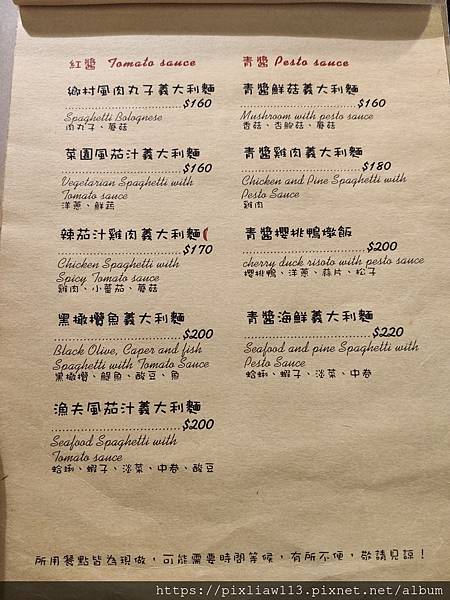 紅醬 Tomato sauce
鄉村風肉丸子義大利麵
$160
Spaghetti Bolognese
肉丸子、蘑菇
菜園風茄汁義大利麵
$160
Vegetarian Spaghetti with
Tomato sauce
洋蔥、鮮蔬
辣茄汁雞肉義大利麵
$170
Chicken Spaghetti with
Spicy Tomato sauce
雞肉、小蕃茄、蘑菇
黑橄欖魚義大利麵
$200
Black Olive, Caper and fish
Spaghetti with Tomato Sauce
黑橄欖、鯷魚、酸豆、魚
漁夫風茄汁義大利麵
$200
Seafood Spaghetti with
Tomato sauce
蛤蜊、蝦子、淡菜、中卷、酸豆
青醬 Pesto sauce
青醬鮮菇義大利麵
$160
Mushroom with pesto sauce
香菇、杏鮑菇、蘑菇
青醬雞肉義大利麵
$180
Chicken and Pine Spaghetti with
Pesto Sauce
雞肉
青醬櫻桃鴨燉飯
$200
cherry duck risoto with pesto sauce
櫻桃鴨、洋蔥、蒜片、松子
青醬海鮮義大利麵
$220
Seafood and pine Spaghetti with
Pesto Sauce
蛤蜊、蝦子、淡菜、中卷
所用餐點皆為現做，可能需要時間等候，有所不便，敬請見諒！
https://pixliaw113.pixnet.net/album